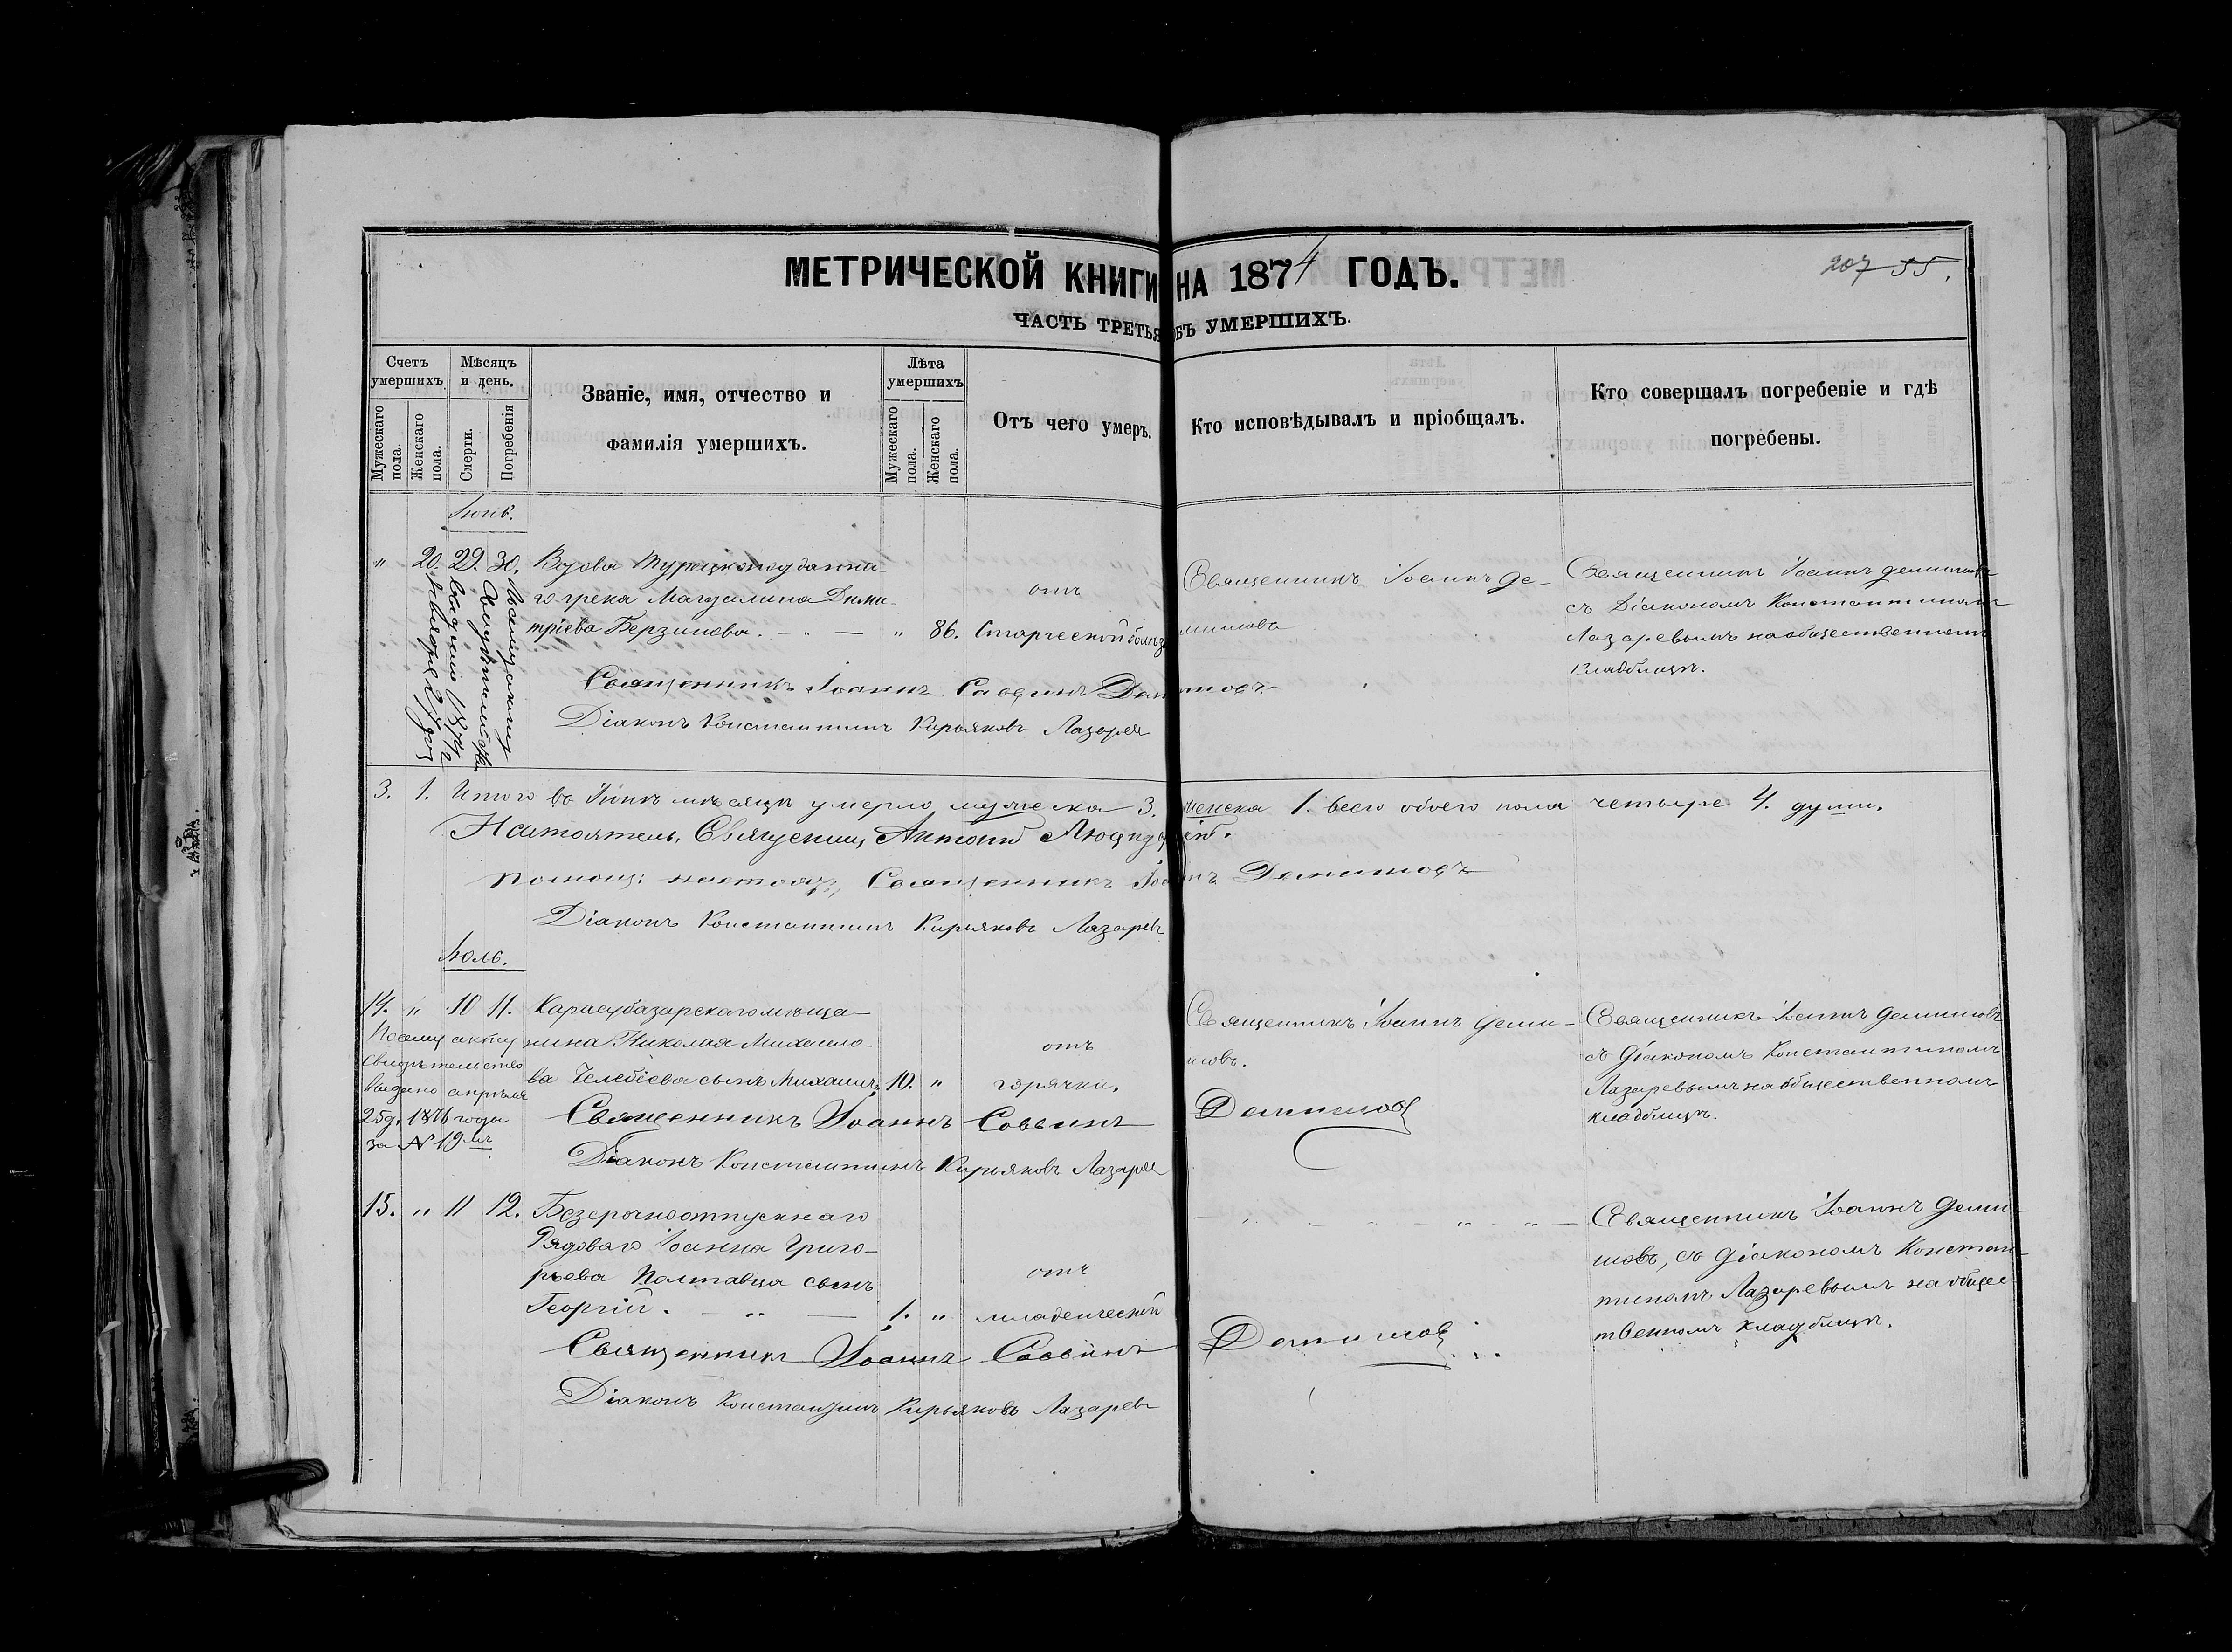 МЕТРИЧЕСКОЙ КНИГИ НА 1874 ГОДЪ.
207 55.
ЧАСТЬ ТРЕТЬЯ ОБЪ УМЕРШИХЪ.
Счетъ умершихъ
Мужескаго пола.
Женскаго пола.
Мѣсяцъ и день.
Смерти.
Погребенія
Званіе, имя, отчество и
фамилія умершихъ.
Лѣта умершихъ
Мужескаго пола.
Женскаго пола.
Отъ чего умеръ.
Кто исповѣдывалъ и пріобщалъ.
Кто совершалъ погребеніе и гдѣ
погребены.
Іюнь.
" 20. 29. 30. Вдова Турецкоподданна-
го грека Магдалина Дими-
тріева Берзинова. - " - " 86.
отъ
Старческой
Священникъ Іоаннъ Де-
Священникъ Іоаннъ
съ Діакономъ Константиномъ
Лазаревымъ на общественномъ
кладбищѣ.
Священникъ Іоаннъ Саввинъ
Діаконъ Константинъ Кирьяковъ Лазарев
3. 1. Итого въ Іюнѣ мѣсяцѣ умерло мужеска 3. женска 1. всего обоего пола четыре 4. души.
Настоятель, Священник Антоній
Помощ: настоят, Священникъ Іоаннъ
Діаконъ Константинъ Кирьяковъ Лазаревъ
Іюль.
14. " 10 11. Карасубазарскаго мѣща-
нина Николая Михайло-
ва Челебіева сынъ Михаилъ 10. "
отъ
горячки.
Посему акту
свидѣтельство
выдано апрѣля
25 д. 1876 года
за № 19мъ
Священникъ Іоаннъ
Священникъ Іоаннъ
съ Діакономъ Константиномъ
Лазаревымъ на общественномъ
кладбищѣ.
Священникъ Іоаннъ Саввинъ
Діаконъ Константинъ Кирьяковъ Лазарев
15. " 11 12. Безсрочноотпускнаго
Рядоваго Іоанна Григо-
рьева Полтавца сынъ
Георгій. - " - 1. "
отъ
младенческой
Священникъ Іоаннъ
съ Діакономъ Констан-
тиномъ Лазаревымъ на общес
твенномъ кладбищѣ.
Священникъ Іоаннъ Саввинъ
Діаконъ Константинъ Кирьяковъ Лазаревъ